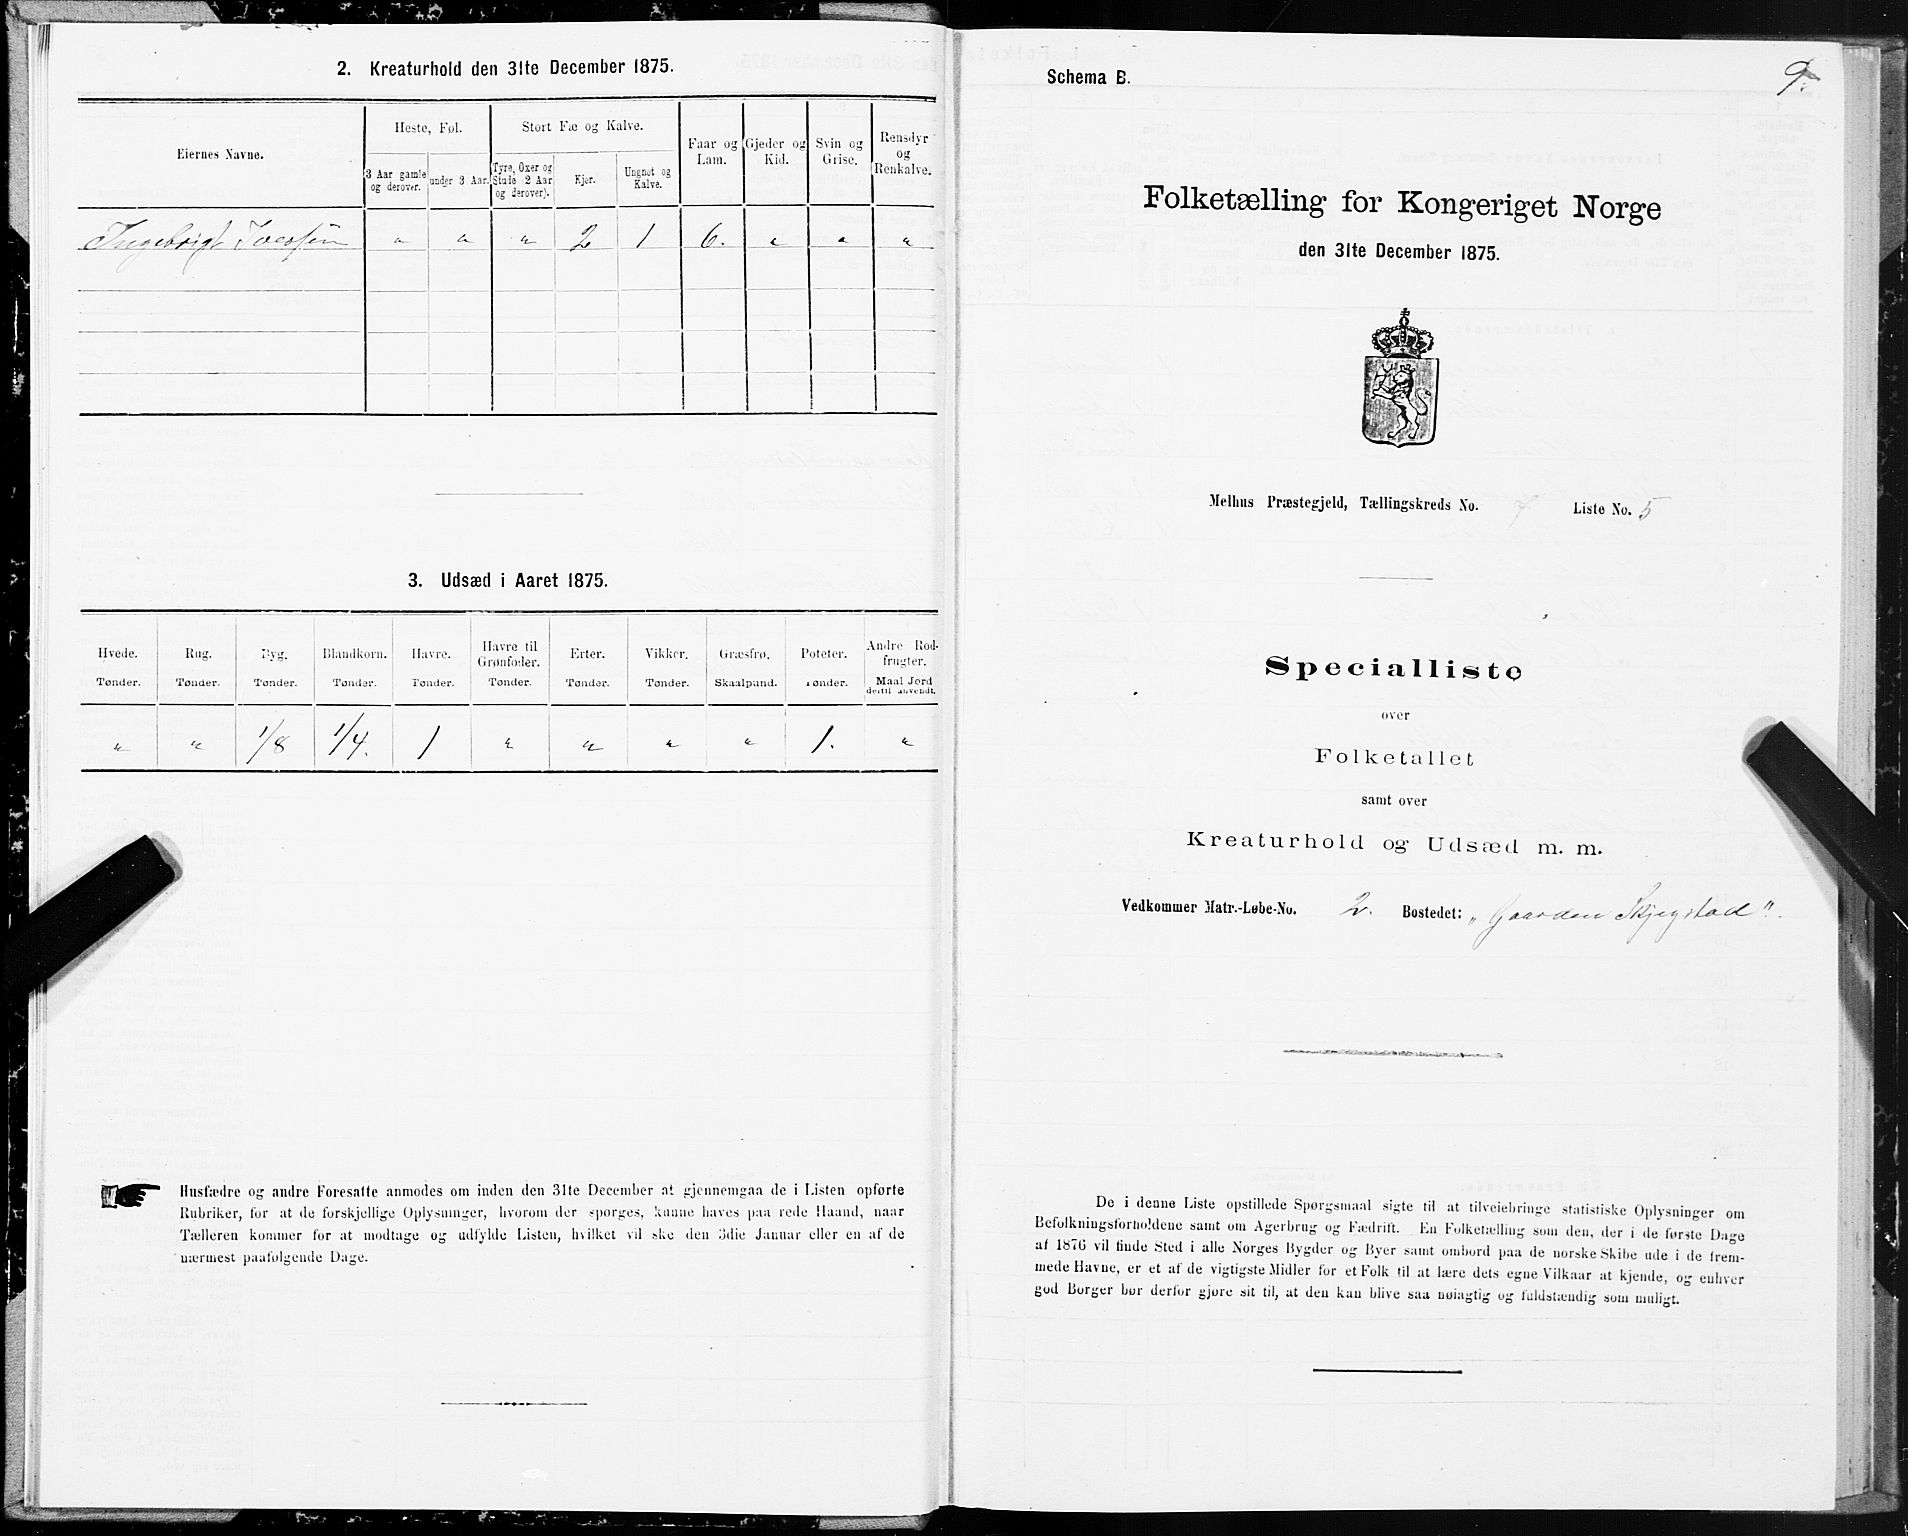 2. Kreaturhold den 31te December 1875.
Eiernes Navne.
Heste, Føl.
Stort Fæ og Kalve.
Faar og Lam.
Gjeder og Kid.
Svin og Grise.
Rensdyr og Renkalve.
3 Aar gamle og derover.
under 3 Aar.
Tyre, Oxer og Stude (2 Aar og derover).
Kjør.
Ungnøt og Kalve.
Ingebrigt Iversen " " " 2 1 6. " " "
3. Udsæd i Aaret 1875.
Hvede. Rug. Byg. Blandkorn. Havre. Havre til Grønfoder. Erter. Vikker. Græsfrø. Poteter. Andre Rodfrugter.
Tønder. Tønder. Tønder. Tønder. Tønder. Tønder. Tønder. Tønder. Skaalpund. Tønder. Maal Jord dertil anvendt.
" " 1/8 1/4. 1 " " " " 1. "
Husfædre og andre Foresatte anmodes om inden den 31te December at gjennemgaa de i Listen opførte
Rubriker, for at de forskjellige Oplysninger, hvorom der spørges, kunne haves paa rede Haand, naar
Tælleren kommer for at modtage og udfylde Listen, hvilket vil ske den 3die Januar eller en af de
nærmest paafølgende Dage.
9.
Schema B.
Folketælling for Kongeriget Norge
den 31te December 1875.
Melhus Præstegjeld, Tællingskreds No. 7 Liste No. 5
Specialliste
over
Folketallet
samt over
Kreaturhold og Udsæd m. m.
Vedkommer Matr.-Løbe-No. 2. Bostedet: "Gaarden Skjegstad".
De i denne Liste opstillede Spørgsmaal sigte til at tilveiebringe statistiske Oplysninger om
Befolkningsforholdene samt om Agerbrug og Fædrift. En Folketælling som den, der i de første Dage
af 1876 vil finde Sted i alle Norges Bygder og Byer samt ombord paa de norske Skibe ude i de frem-
mede Havne, er et af de vigtigste Midler for et Folk til at lære dets egne Vilkaar at kjende, og enhver
god Borger bør derfor gjøre sit til, at den kan blive saa nøiagtig og fuldstændig som muligt.